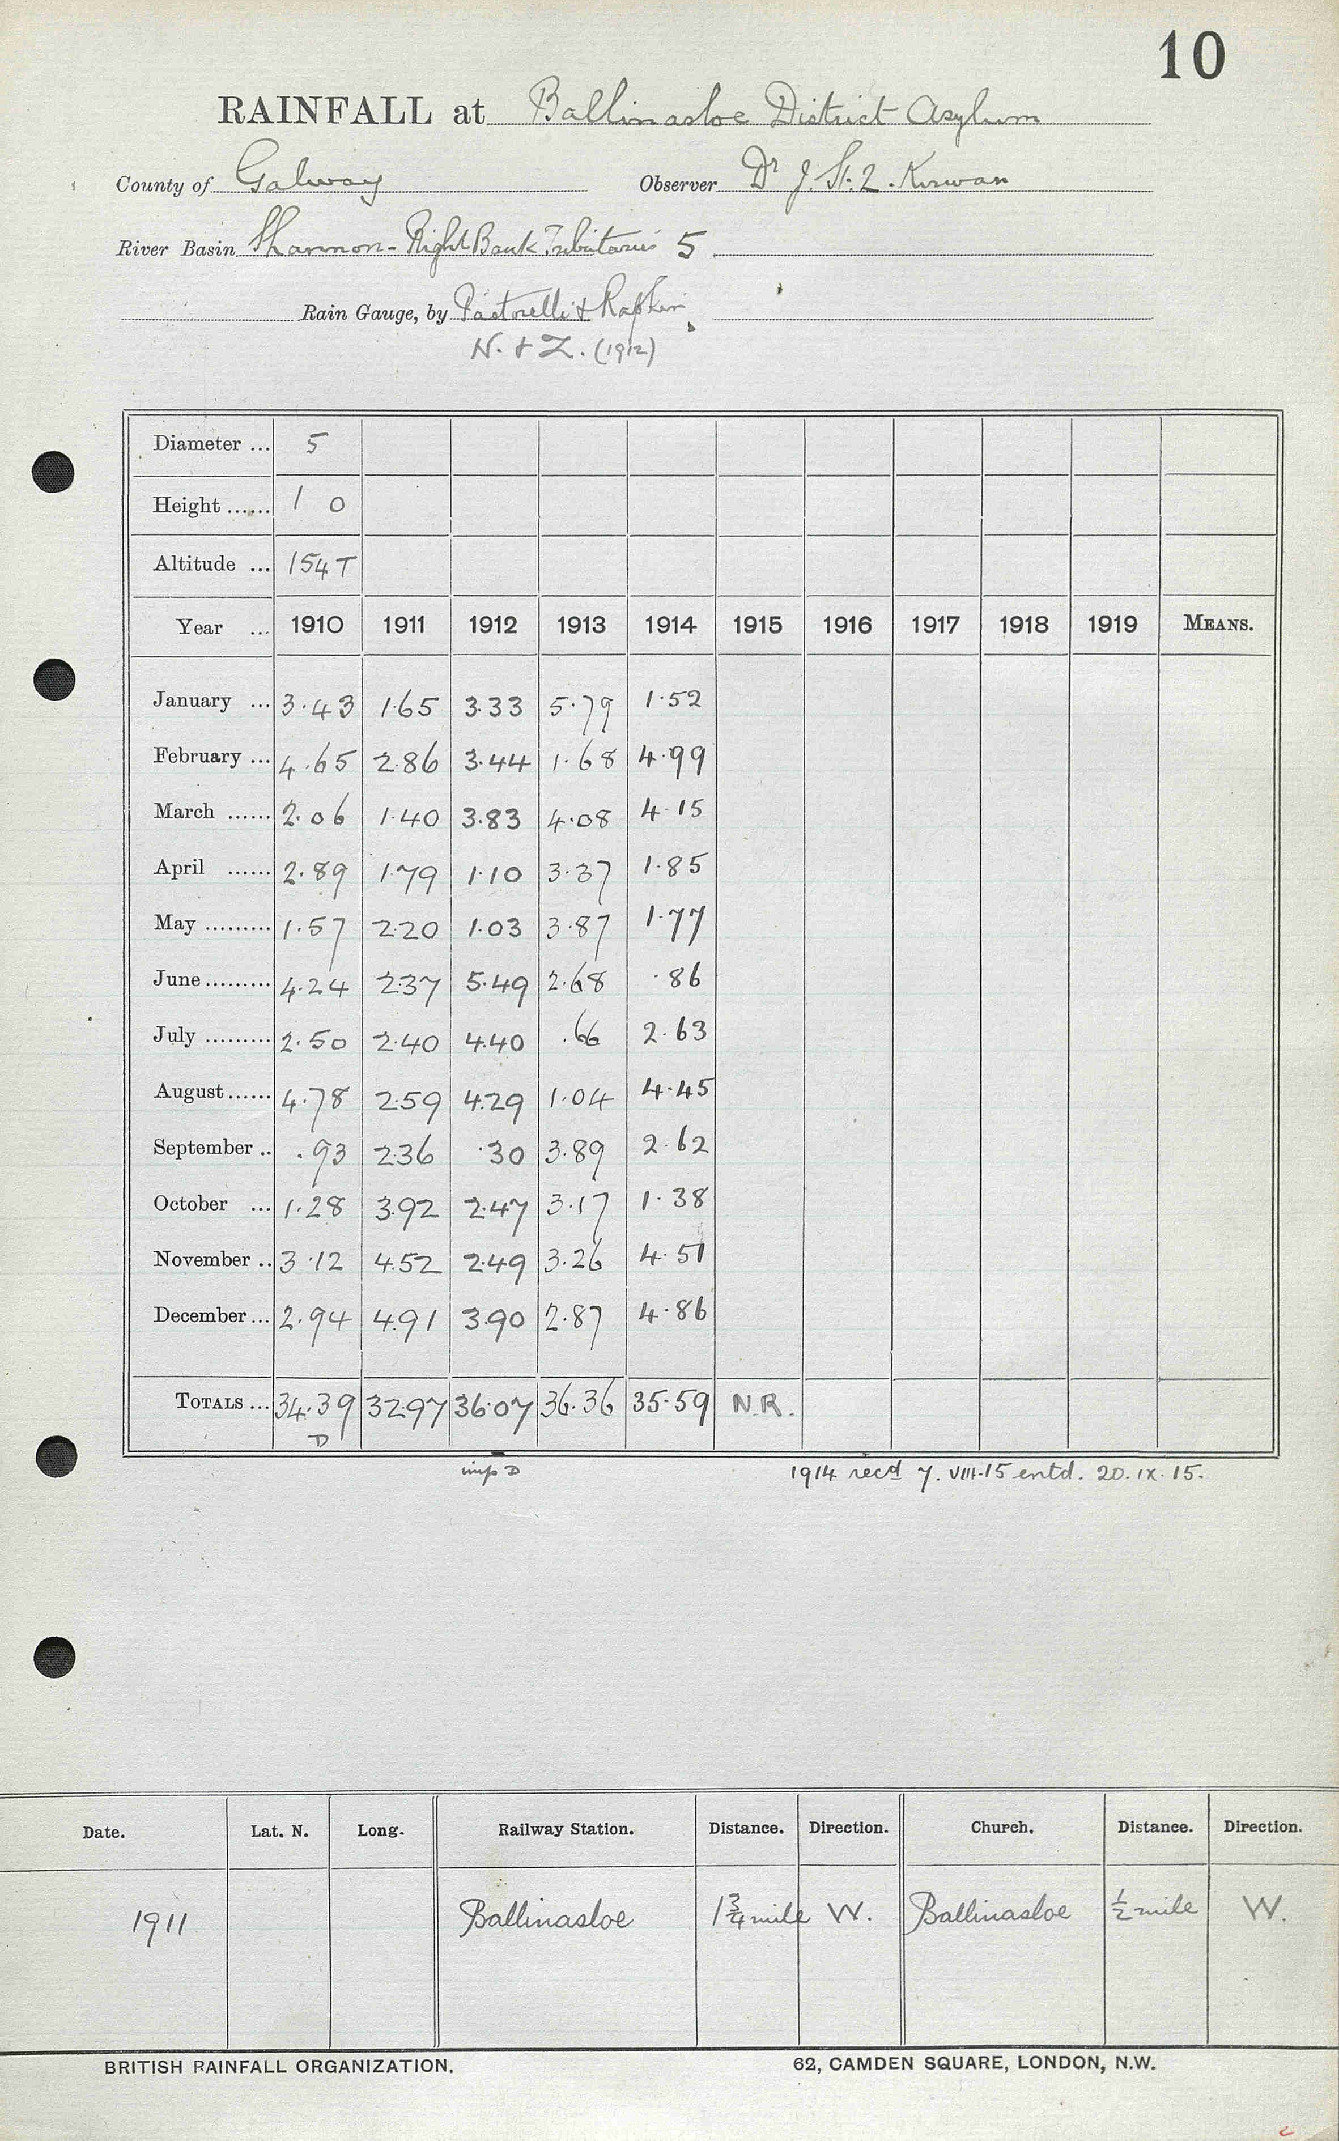 10
RAINFALL at Ballinasloe District Asylum
County of Galway Observer Dr J. St. L. Kirwan
River Basin Shannon - Right Bank Tributaries 5
Rain Gauge, by Pastorelli & Rapkin
N. & Z. (1912)
Diameter ... 5
Height ...... 1 0
Altitude ... 154 T
Year ... 1910 1911 1912 1913 1914 1915 1916 1917 1918 1919 MEANS.
January ... 3.43 1.65 3.33 5.79 1.52
February ... 4.65 2.86 3.44 1.68 4.99
March ...... 2.06 1.40 3.83 4.08 4.15
April ...... 2.89 1.79 1.10 3.37 1.85
May ......... 1.57 2.20 1.03 3.87 1.77
June ......... 4.24 2.37 5.49 2.68 .86
July ......... 2.50 2.40 4.40 .66 2.63
August ...... 4.78 2.59 4.29 1.04 4.45
September .. .93 2.36 .30 3.89 2.62
October ... 1.28 3.92 2.47 3.17 1.38
November .. 3.12 4.52 2.49 3.26 4.51
December ... 2.94 4.91 3.90 2.87 4.86
TOTALS ... 34.39 32.97 36.07 36.36 35.59 N.R.
D
imp D 1914 recd 7. VIII.15 entd. 20. IX. 15.
Date. Lat. N. Long. Railway Station. Distance. Direction. Church. Distance. Direction.
1911 Ballinasloe 1 3/4 mile W. Ballinasloe 1/2 mile W.
BRITISH RAINFALL ORGANIZATION. 62, CAMDEN SQUARE, LONDON, N.W.